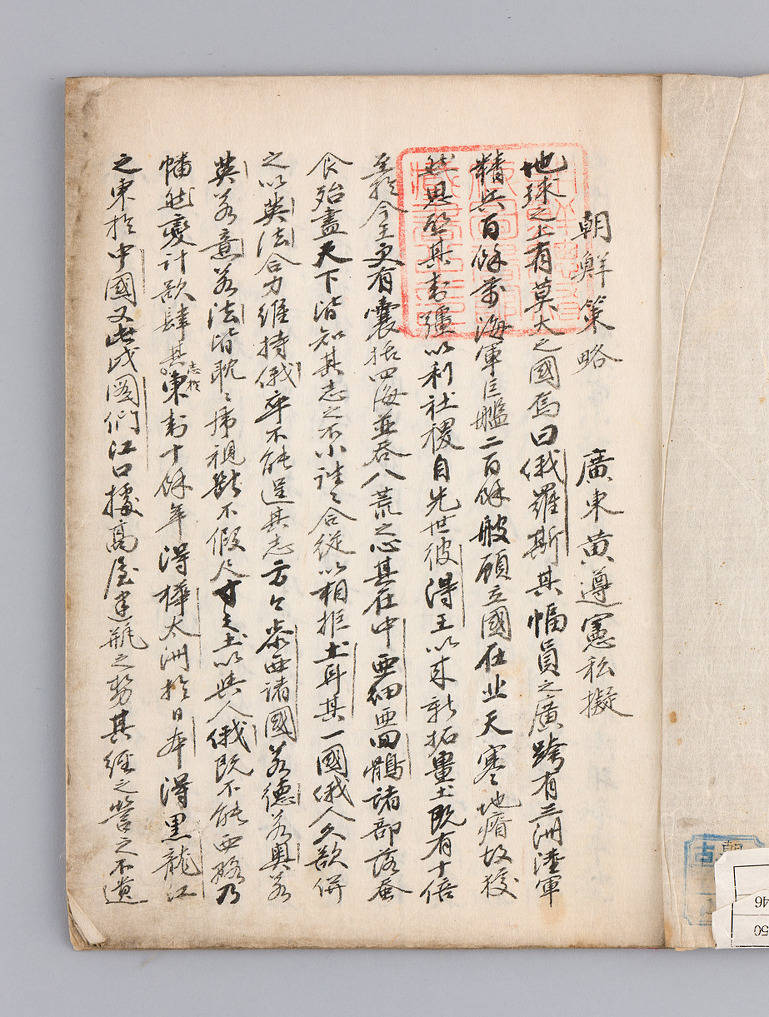 朝鮮策略　廣東黃遵憲私擬
地球之上有莫大之國焉曰俄羅斯其幅員之廣跨有三洲陸軍
精兵百餘萬海軍巨艦二百餘艘顧立國在北天寒地瘠故狡
然思啓其封疆以利社稷自先世彼得王以來新拓疆土既有十倍
至於今王更有囊括四海並吞八荒之心其在中亞細亞回鶻諸部落蚕
食殆盡天下皆知其志之不小往々合從以相拒土耳其一國俄人久欲併
之以英法合力維持俄卒不能逞其志方今泰西諸國若德若奧若
英若意若法皆耽々虎視斷不假尺寸之土以與人俄既不能西略乃
幡然變計欲肆其志於東封十餘年得樺太洲於日本得黑龍江
之東於中國又屯戍圖們江口據高屋建瓴之勢其經之營之不遺
46
50